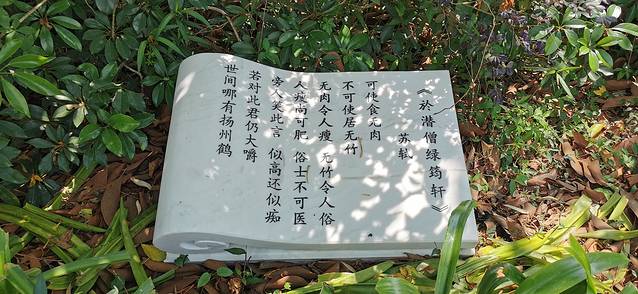 《於潜僧绿筠轩》
苏轼
可使食无肉
不可使居无竹
无肉令人瘦 无竹令人俗
人瘦尚可肥 俗士不可医
旁人笑此言 似高还似痴
若对此君仍大嚼
世间哪有扬州鹤